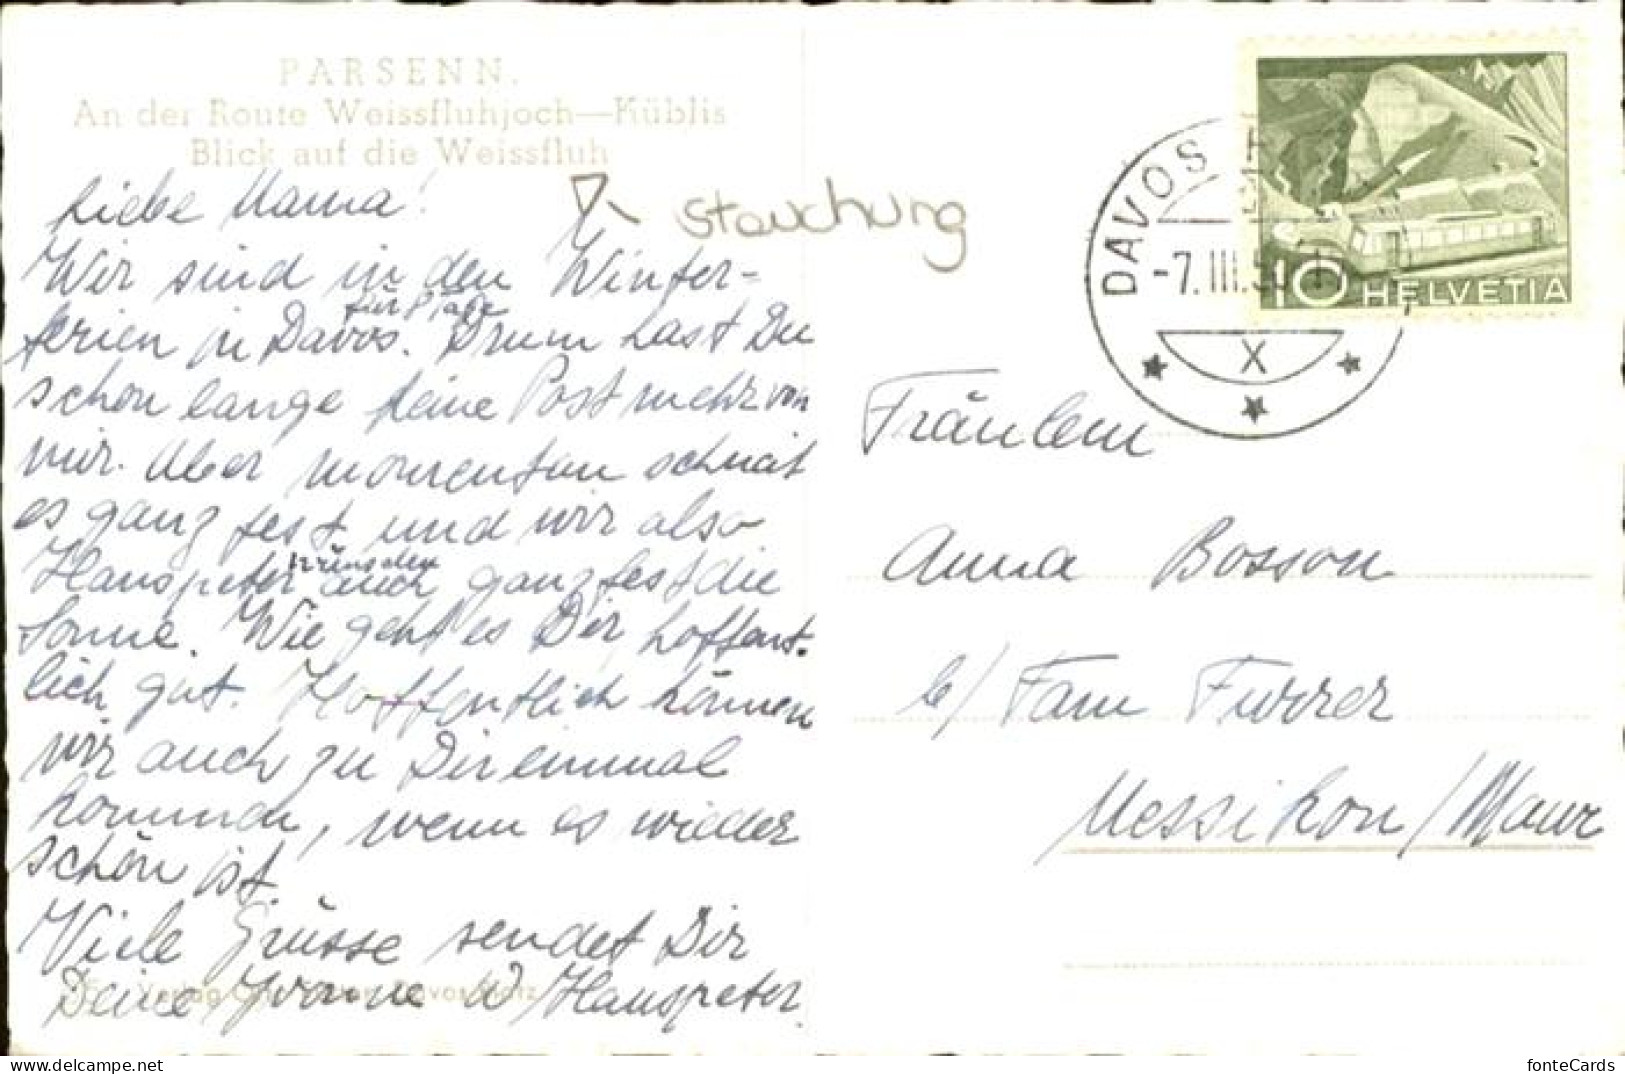 PARSENN.
An der Route Weissfluhjoch—Küblis
Blick auf die Weissfluh
Liebe Mama!
Stauchung
Wir sind in den Winter-
ferien in Davos. Drum hast Du
für
schon lange keine Post mehr von
mir. Aber momentan schneit
es ganz fest und wir also
Hanspeter auch ganz fest die
wünschen
Sonne. Wie geht es Dir, hoffent-
lich gut. Hoffentlich können
wir auch zu Dir einmal
kommen, wenn es wieder
schön ist.
Viele Grüsse sendet Dir
Deine Yvonne u Hanspeter
Verlag Davos Platz
DAVOS
-7.III.50
X
10 HELVETIA
Fräulein
Anna Bosson
b/ Fam Furrer
Uessikon/Maur
fonteCards